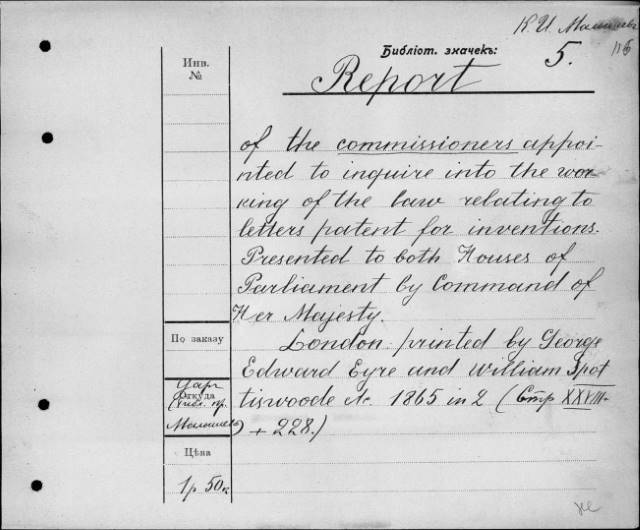 К. И. Малышевъ
Библіот. значекъ: 5.
Инв.
№
Report
of the commissioners appoi-
nted to inquire into the wor-
king of the law relating to
letters patent for inventions.
Presented to both Houses of
Parliament by Command of
Her Majesty.
London: printed by George
Edward Eyre and William Spot
tiswoode &c. 1865 in 2 (Стр XXVIII-
+ 228.)
По заказу
Даръ
Откуда
Малышевъ)
Цѣна
1 р 50 к